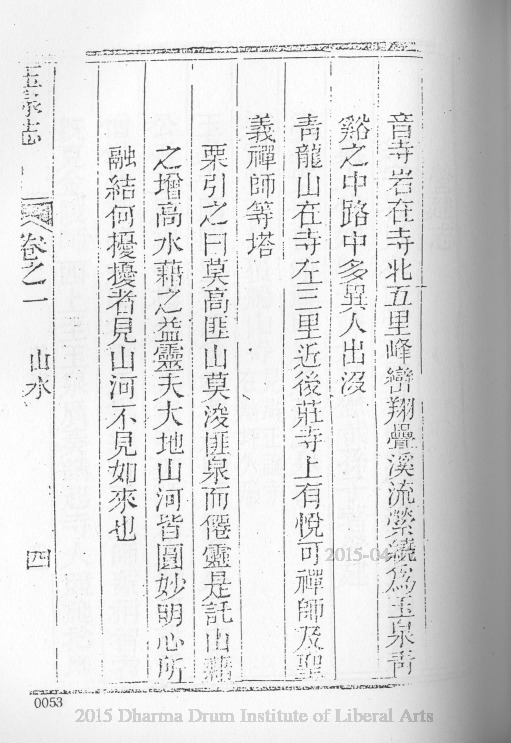 音寺岩在寺北五里峰巒翔疊溪流縈繞為玉泉青
谿之中路中多異人出沒
青龍山在寺左三里近後莊寺上有悅可禪師及聖
義禪師等塔
栗引之曰莫高匪山莫浚匪泉而僊靈是託山藉
之增高水藉之益靈夫大地山河皆圓妙明心所
融結何擾擾者見山河不見如來也
玉泉志
卷之一
山水
四
0053
2015 Dharma Drum Institute of Liberal Arts